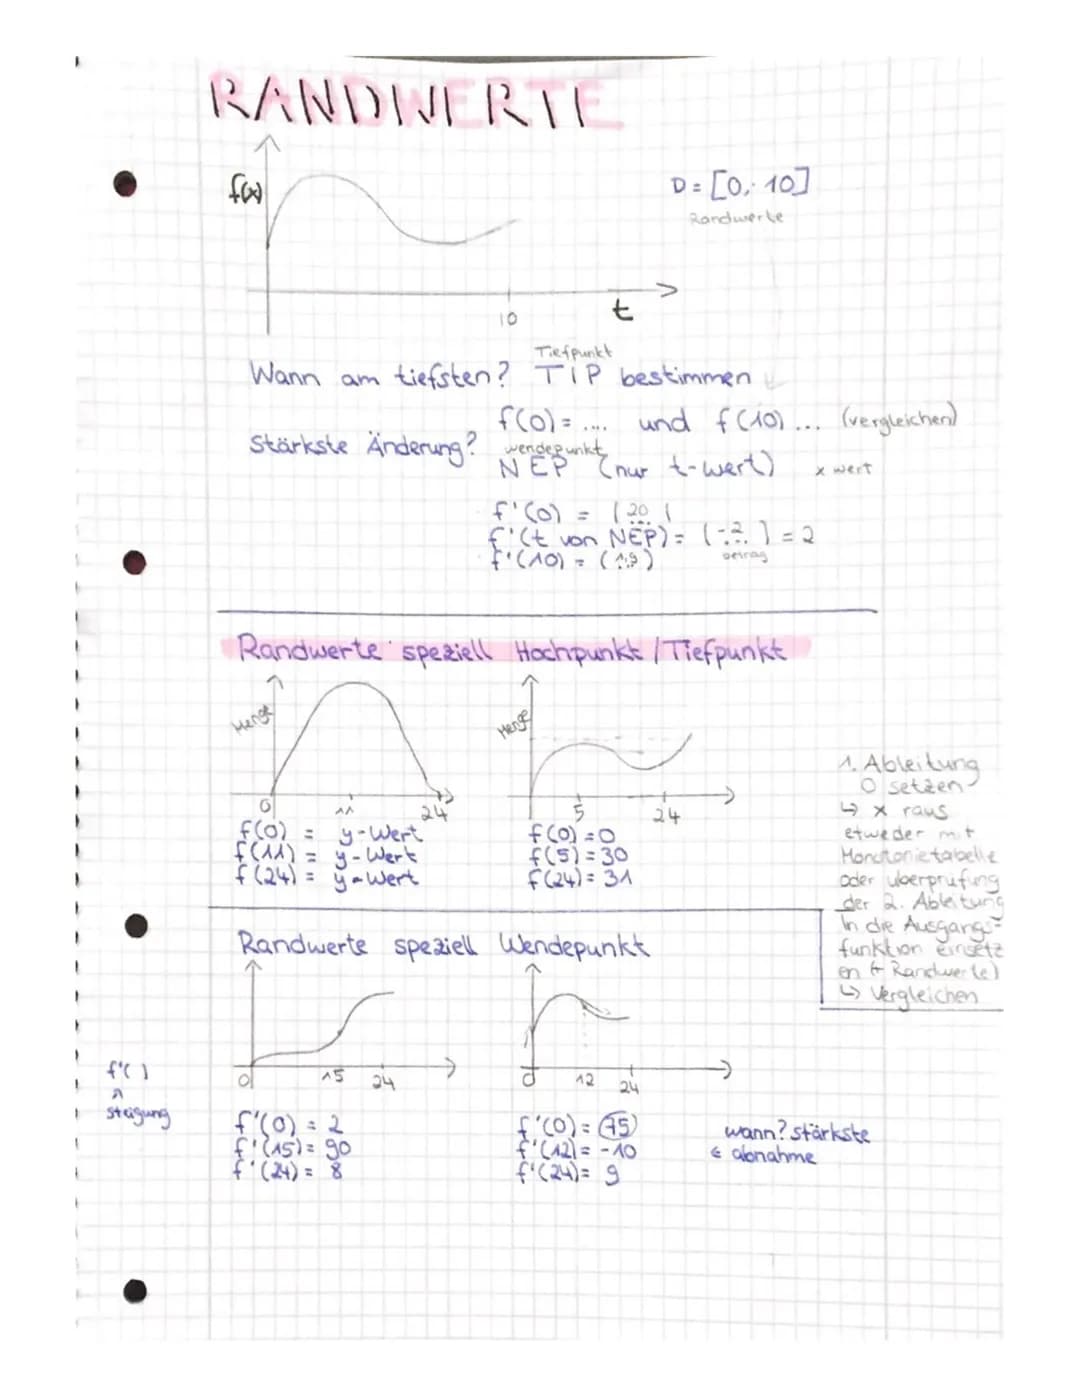 RANDWERTE
f(x)
D = [0; 10]
Randwerte
10
t
Tiefpunkt
Wann am tiefsten? TIP bestimmen
f(0) = .... und f(10) ... (vergleichen)
Stärkste Änderung? wendepunkt
NEP (nur t-wert) x wert
f'(0) = | 20 |
f'(t von NEP) = |-2| = 2
betrag
f'(10) = (1,9)
Randwerte speziell Hochpunkt / Tiefpunkt
Menge
0
11
24
f(0) = y-Wert
f(11) = y-Wert
f(24) = y-Wert
Menge
5
24
f(0) = 0
f(5) = 30
f(24) = 31
1. Ableitung
0 setzen
↳ x raus
etweder mit
Monotonietabelle
oder überprüfung
der 2. Ableitung
In die Ausgangs-
funktion einsetz
en (+ Randwerte)
↳ Vergleichen
Randwerte speziell Wendepunkt
0
15
24
f'( )
steigung
f'(0) = 2
f'(15) = 90
f'(24) = 8
0
12
24
f'(0) = 75
f'(12) = -10
f'(24) = 9
wann? stärkste
abnahme